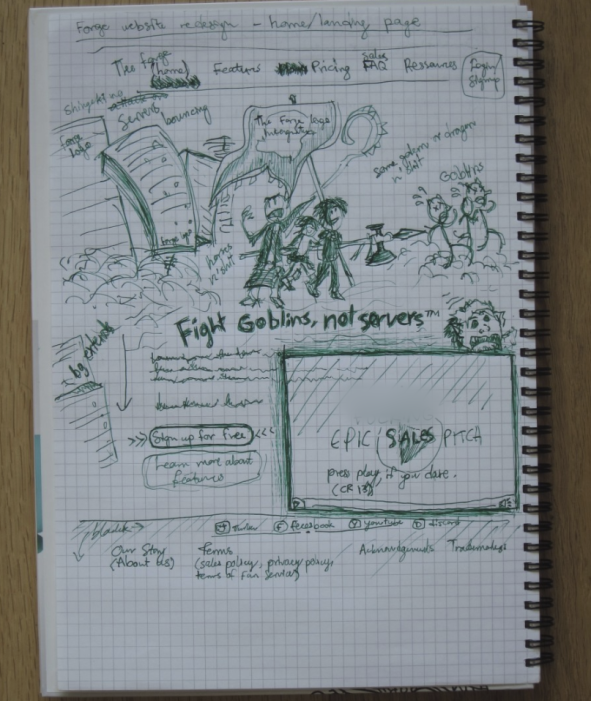 Forge website redesign - home/landing page
The forge (home)
Features
Pricing
Sales FAQ
Ressources
Login/Signup
Servers bouncing
forge logo
The Forge logo
some goblin or dragon n' shit
Goblins
n' shit
forge logo
Fight Goblins, not servers™
bg extends
Sign up for free
Learn more about features
EPIC SALES PITCH
press play, if you dare.
(CR 13)
Twitter
facebook
youtube
discord
Our Story
(About Us)
Terms
(sales policy, privacy policy,
terms of Service)
Acknowledgements
Trademarks